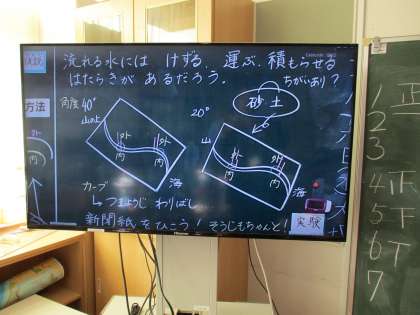 仮説
流れる水には けずる、運ぶ、積もらせる
はたらきが あるだろう。
ちがいあり？
方法
角度40°
20°
砂土
山
山
外
内
外
内
外
内
外
内
海
海
カーブ
↳つまようじ わりばし
新聞紙をひこう！そうじもちゃんと！
実験
外
内
正
1 正
2
3
4 正
5 下
6 T
7